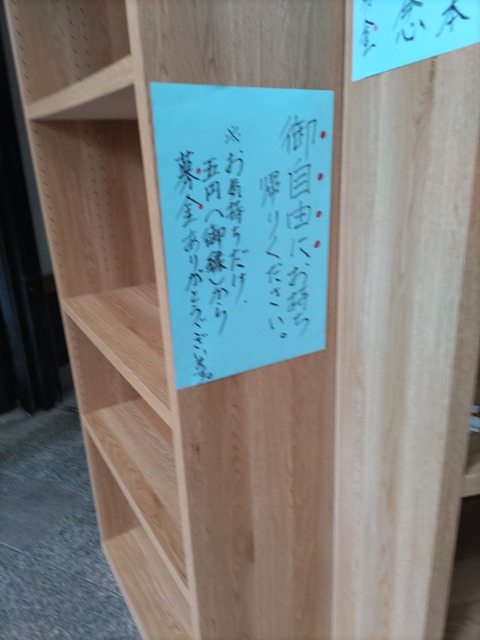 御自由にお持ち
帰りください。
※お気持ちだけ、
五円(御縁)から
募金ありがとうございます。
本
念
金